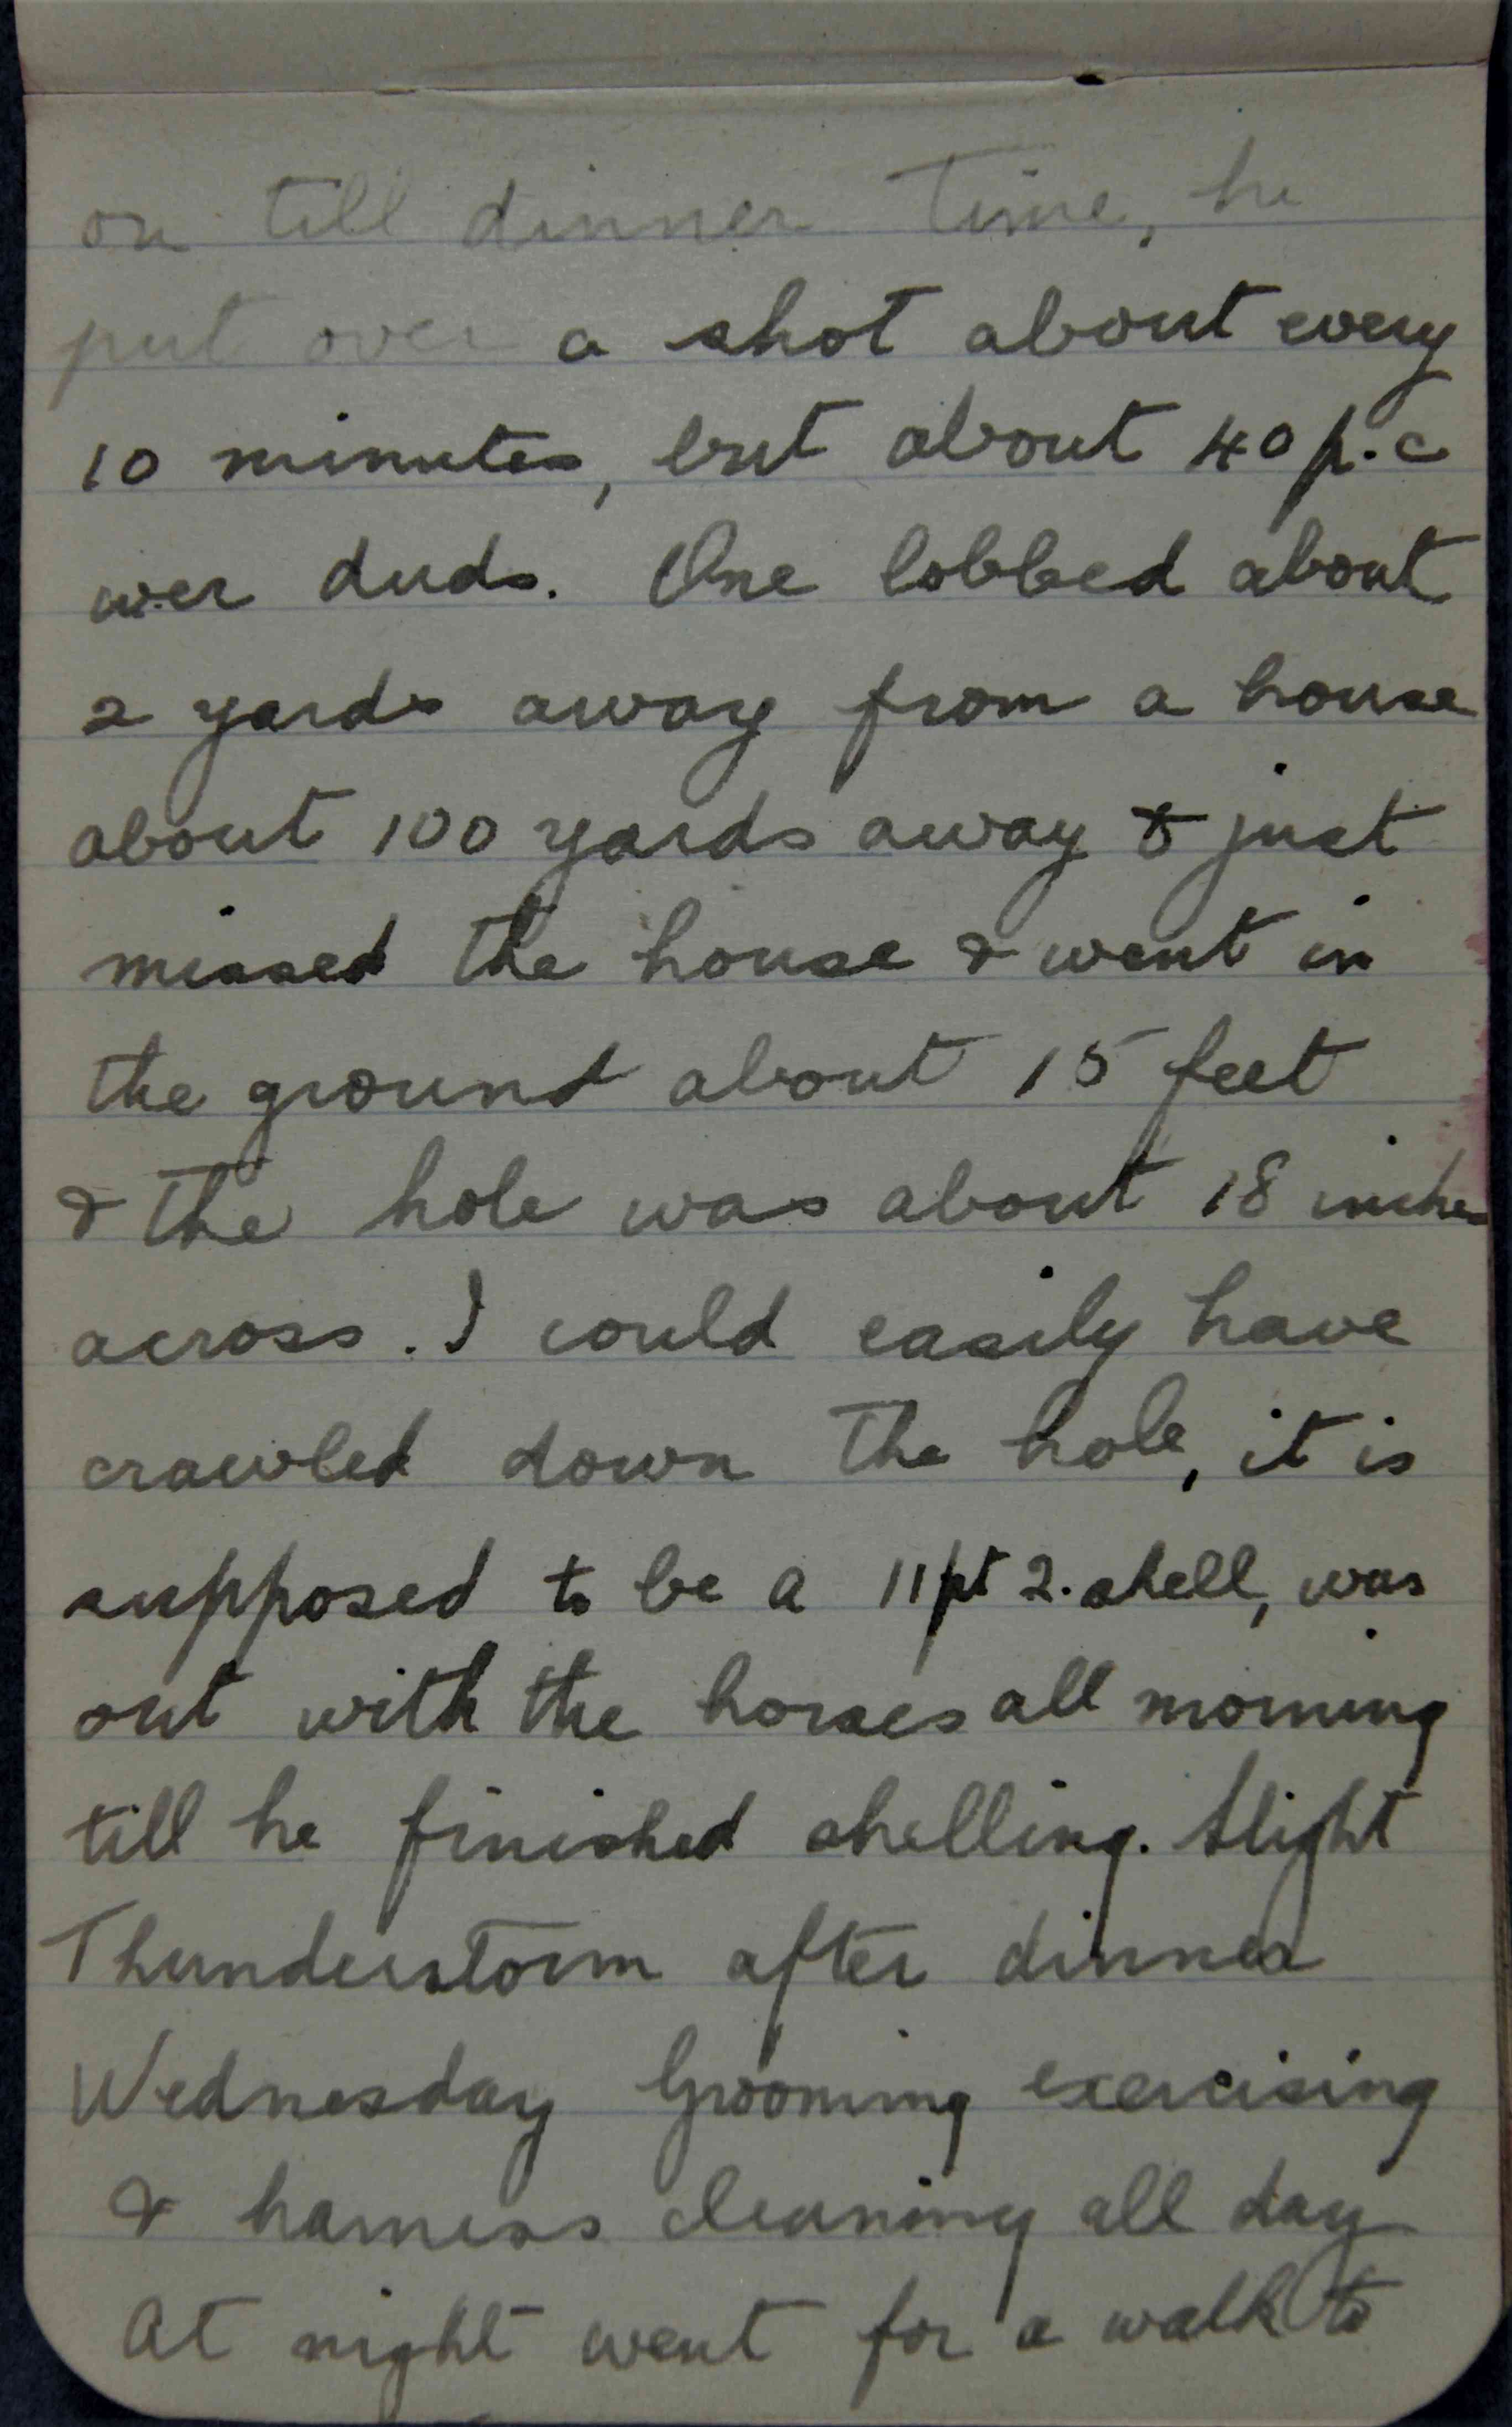 on till dinner Time, he
put over a shot about every
10 minutes, but about 40 p.c
wer duds. One lobbed about
2 yards away from a house
about 100 yards away & just
missed the house & went in
the ground about 15 feet
& the hole was about 18 inches
across. I could easily have
crawled down the hole, it is
supposed to be a 11 pt 2. shell, was
out with the horses all morning
till he finished shelling. Slight
Thunderstorm after dinner
Wednesday Grooming exercising
& harness cleaning all day
At night went for a walk to